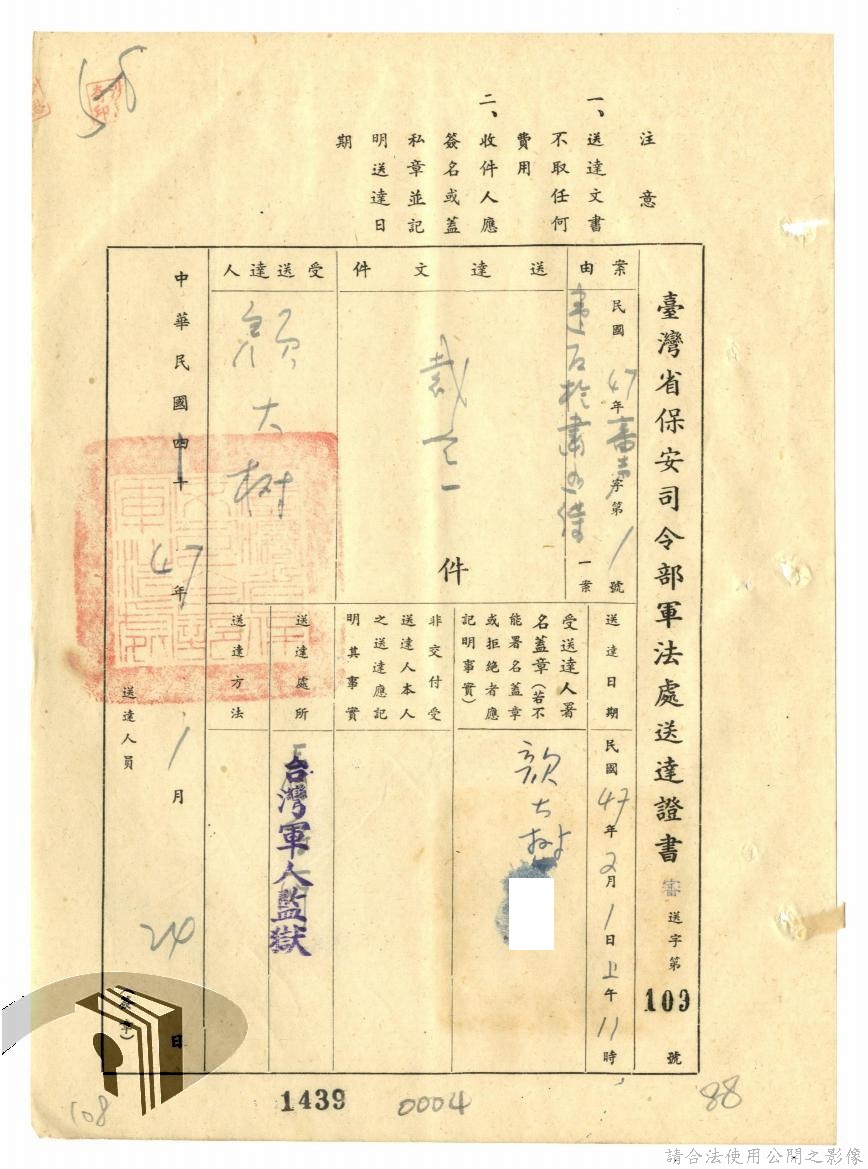 注意
一、送達文書
不取任何
費用
二、收件人應
簽名或蓋
私章並記
明送達日
期
臺灣省保安司令部軍法處送達證書
審送字第109號
案由
民國47年審字第1號
一案
送達文件
裁定一件
受送達人
顏大樹
送達日期
民國47年2月1日上午11時
受送達人署
名蓋章(若不
能署名蓋章
或拒絕者應
記明事實)
顏大樹
非交付受
送達人本人
之送達應記
明其事實
送達處所
台灣軍人監獄
送達方法
中華民國四十
47年1月24日
送達人員
(蓋章)
108
1439
0004
88
請合法使用公開之影像